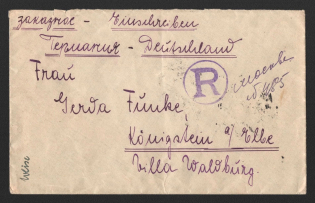 заказное - Einschreiben
Германия - Deutschland
Frau
Gerda Funke
Königstein a/Elbe
Villa Waldburg.
R
Москва